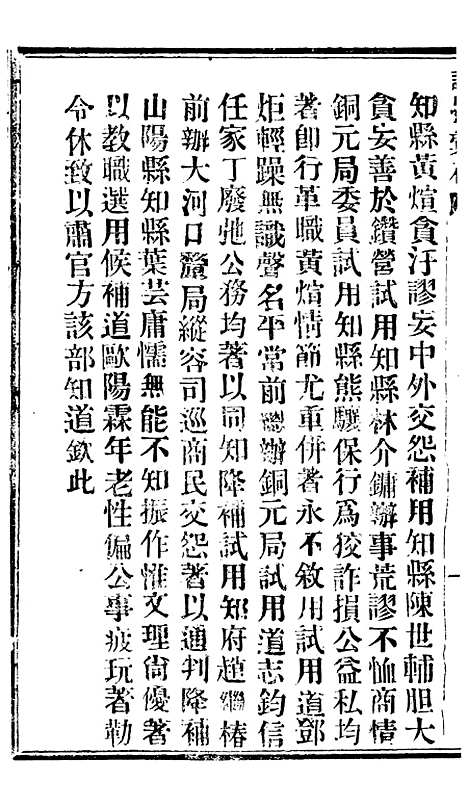 知縣黃煊貪汙謬妄中外交怨補用知縣陳世輔胆大
貪妄善於鑽營試用知縣林介鏞辦事荒謬不恤商情
銅元局委員試用知縣熊驥保行爲狡詐損公益私均
著卽行革職黃煊情節尤重併著永不敘用試用道鄧
炬輕躁無識聲名平常前總辦銅元局試用道志鈞信
任家丁廢弛公務均著以同知降補試用知府趙繼椿
前辦大河口釐局縱容司巡商民交怨著以通判降補
山陽縣知縣葉芸庸懦無能不知振作惟文理尙優著
以教職選用候補道歐陽霖年老性偏公事疲玩著勒
令休致以肅官方該部知道欽此